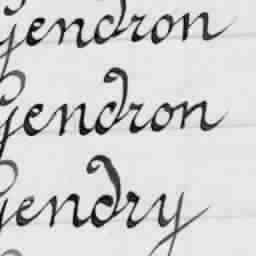 Gendron
Gendron
Gendry